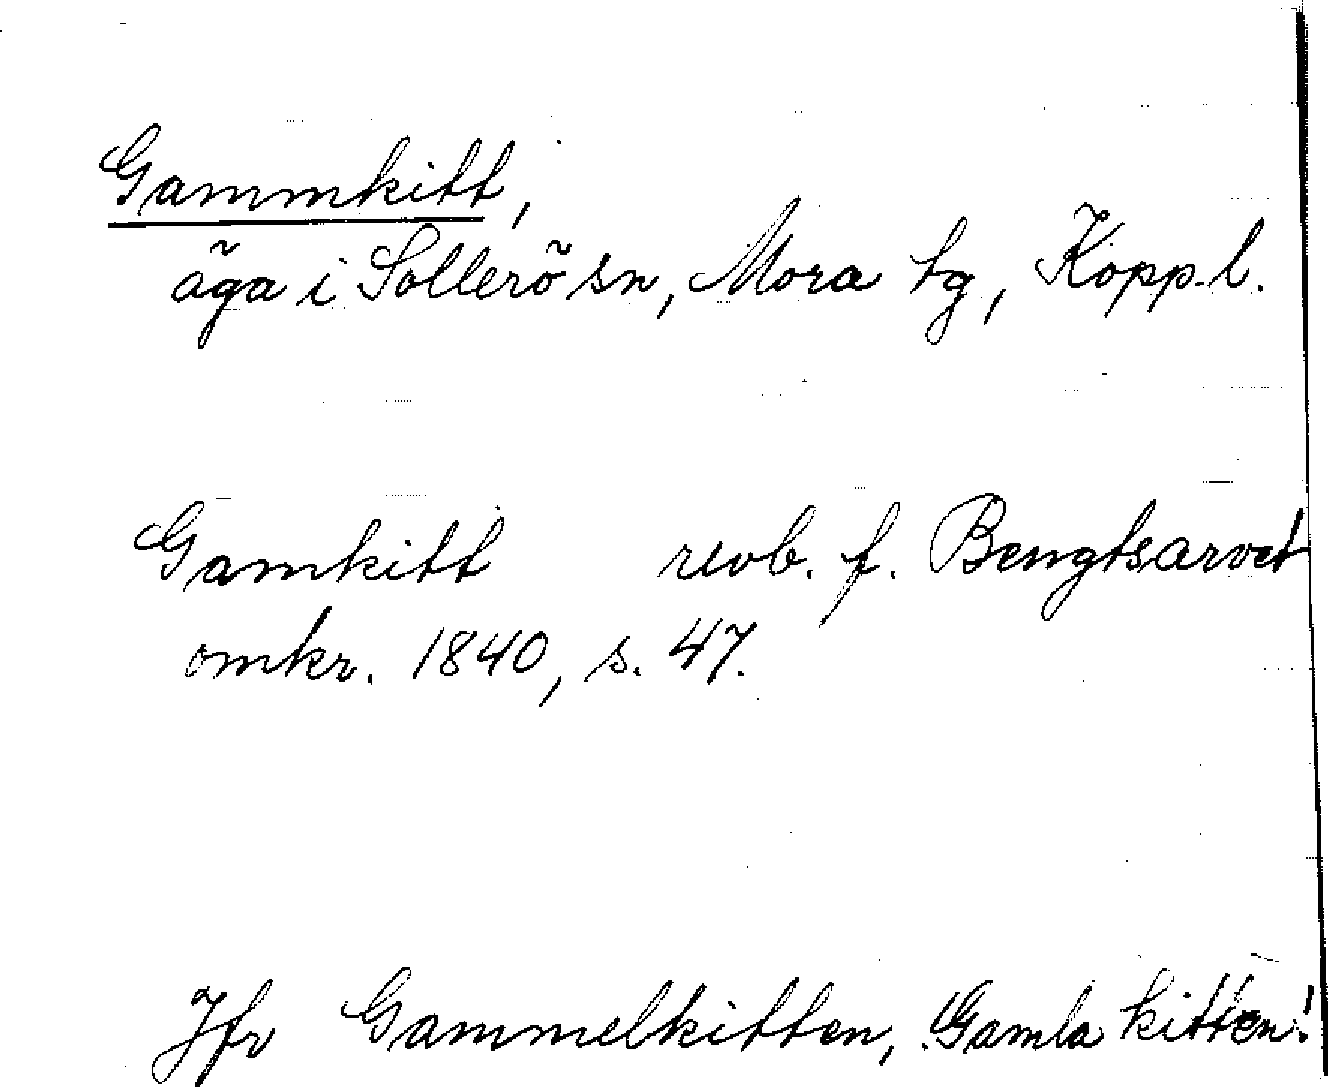 Gammkitt,
äga i Sollerö sn, Mora tg, Kopp. l.
Gamkitt revb. f. Bengtsarvet
omkr. 1840, s. 47.
Jfr Gammelkitten, Gamla kitten!